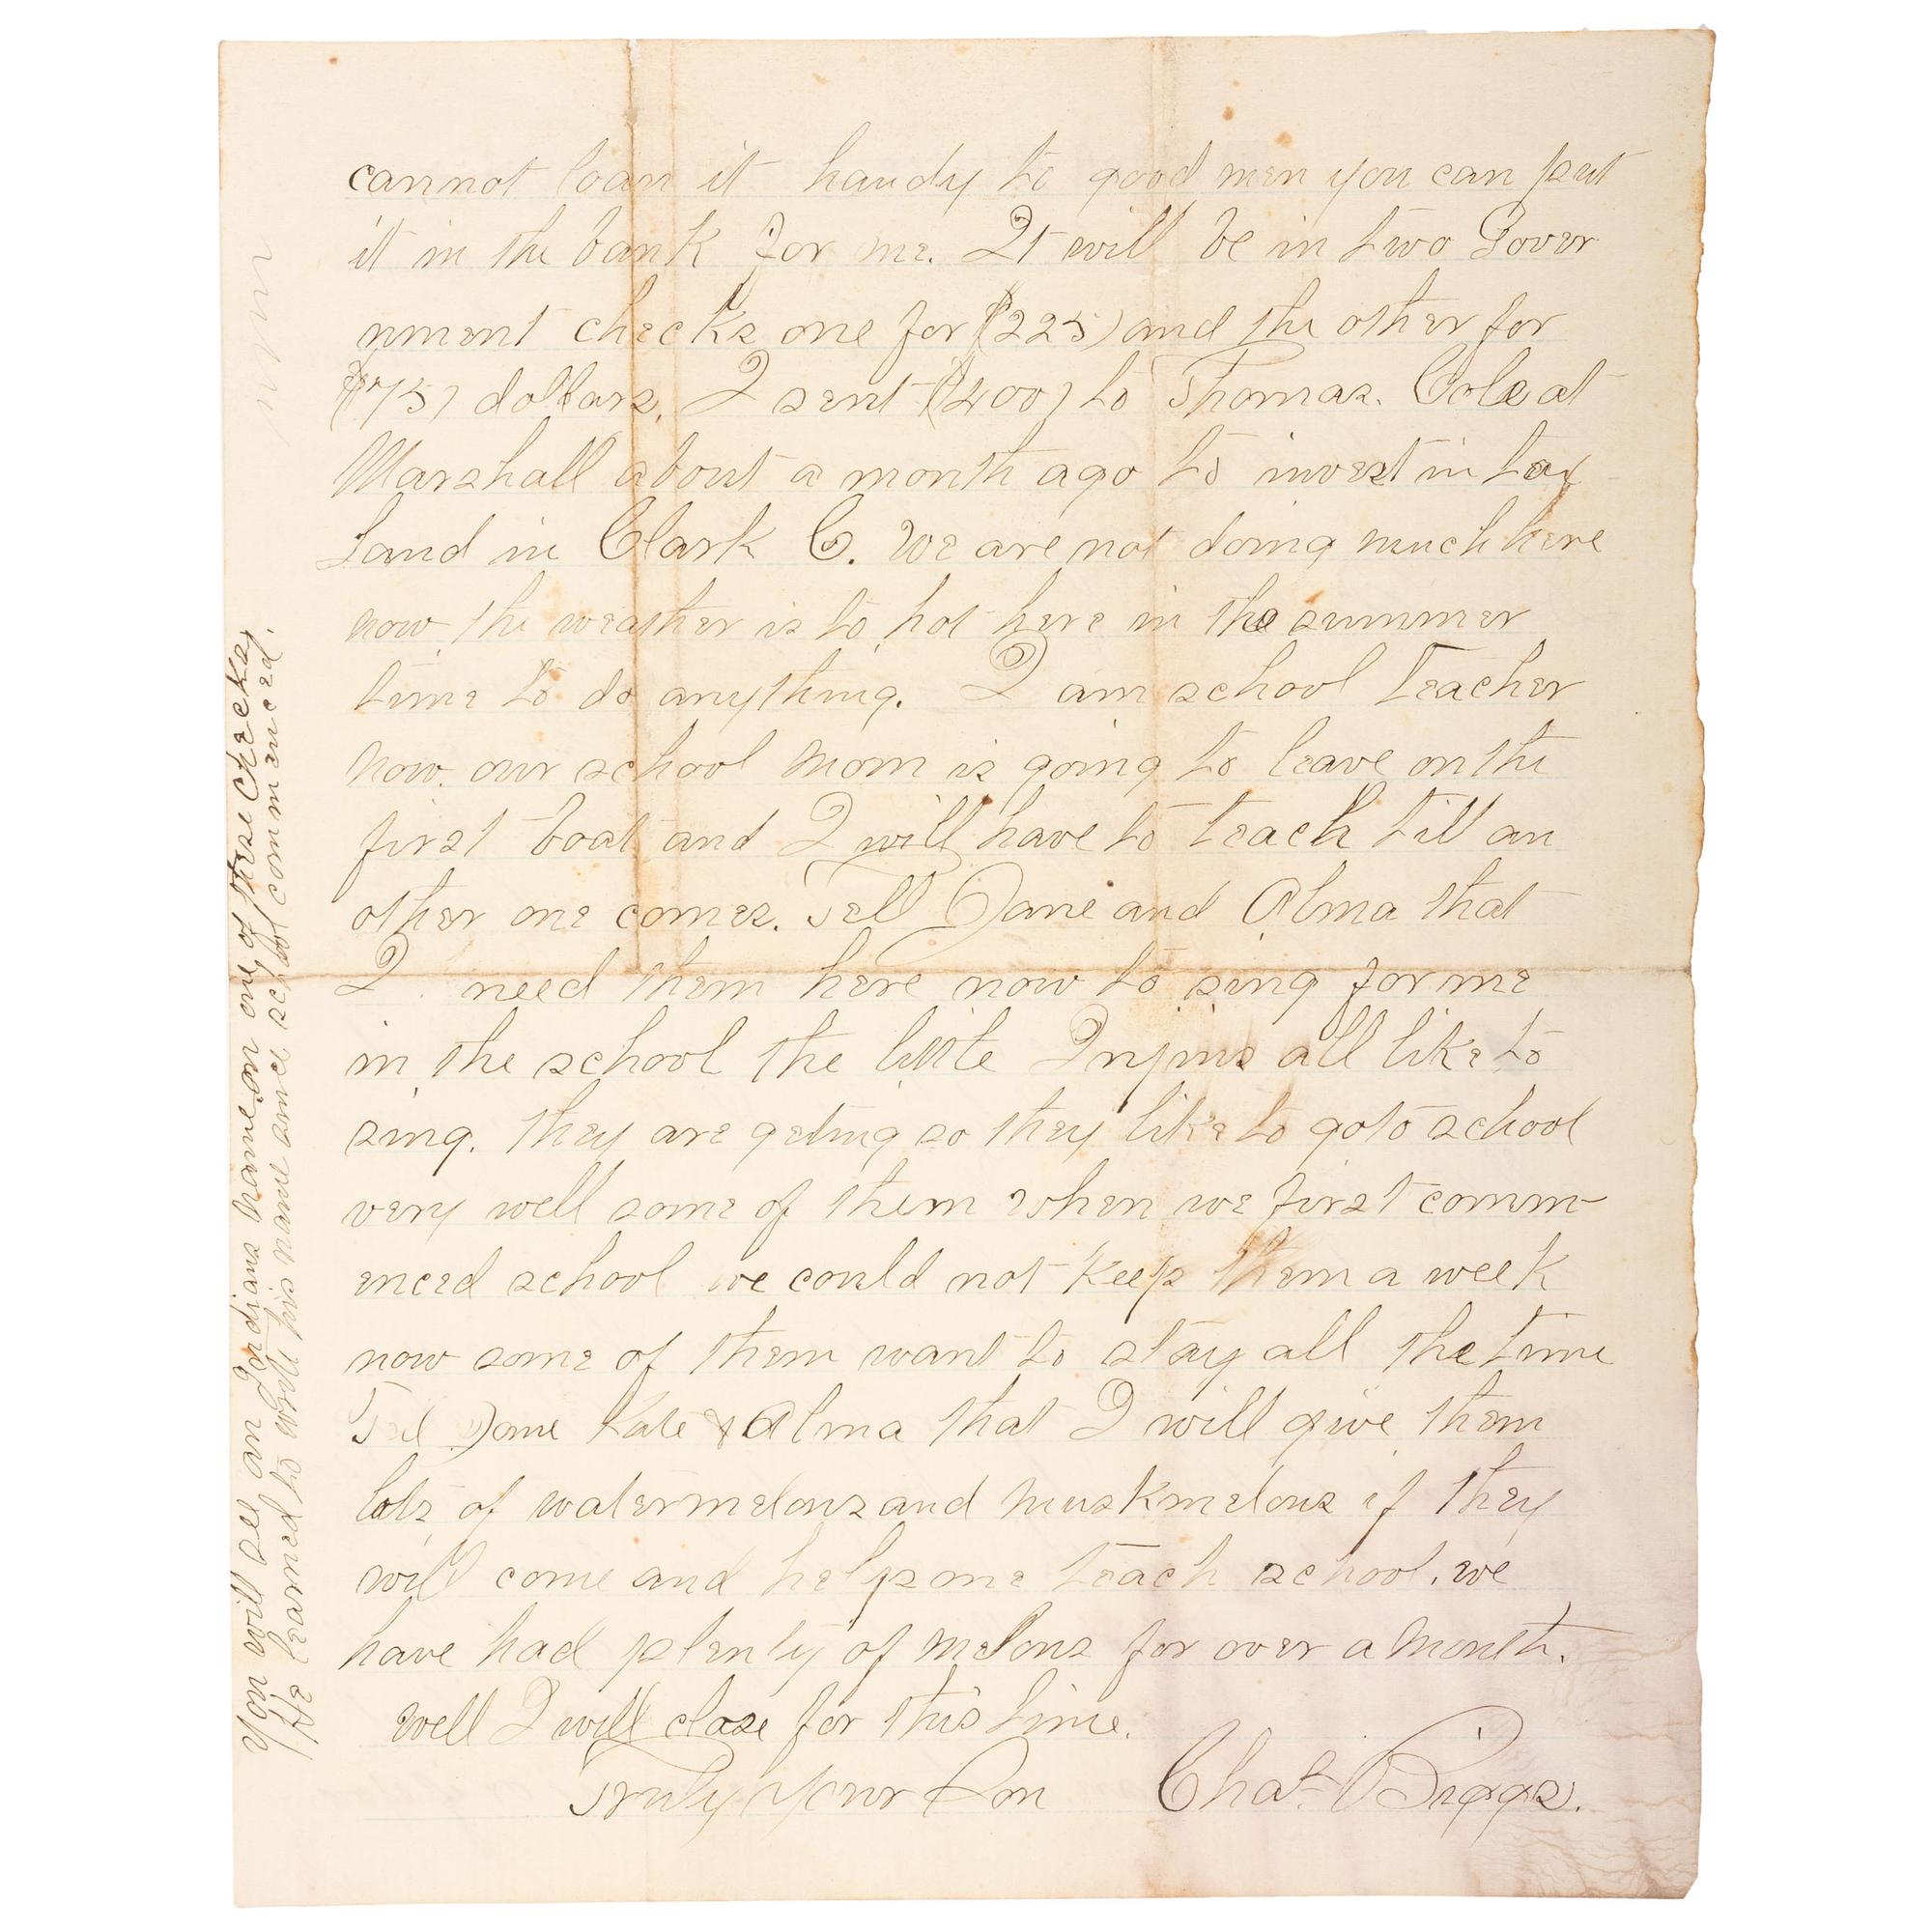 cannot loan it handy to good men you can put
it in the bank for me. It will be in two Gover
nment checks one for ($225) and the other for
($75) dollars, I sent ($200) to Thomas. Cole at
Marshall about a month ago to invest in tax
Land in Clark Co. We are not doing much here
now the weather is to hot here in the summer
time to do anything. I am school teacher
now. our school mom is going to leave on the
first boat and I will have to teach till an
other one comes. Tell Jane and Alma that
I need them here now to sing for me
in the school the little Injins all like to
sing. they are geting so they like to go to school
very well some of them when we first comm-
enced school we could not keep them a week
now some of them want to stay all the time
Tel Jane Kate & Alma that I will give them
lots of watermelons and muskmelons if they
will come and help me teach school. we
have had plenty of melons for over a month.
well I will close for this time.
Truly Your Son Chas. Biggs.
You will see an Indians name on one of these checks,
He learned to write his name since school commenced.